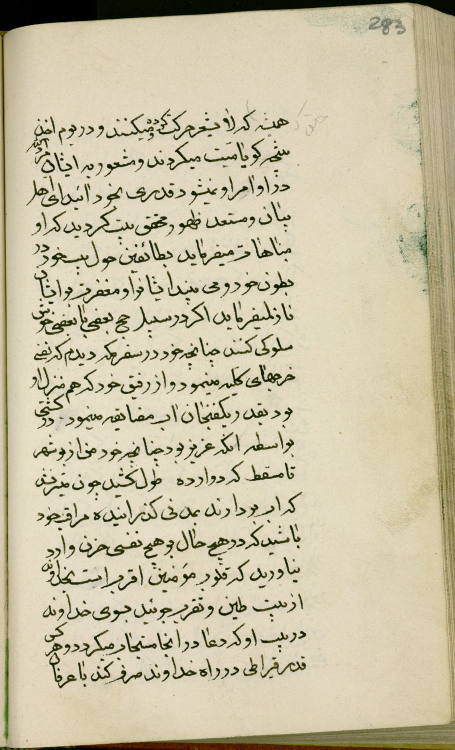 283
همیشه که لا یشعر حرکت کرده و میکنند و در یوم اخذ
ثمره
نتیجه کویا میت میکردند و شعور به ایشان
در او امر او نمیشود قدری بخود ائید ای اهل
بیان و مستعد ظهور محقق بیت کردید که او
مباهات میفرماید بطائفین حول بیت خود در
بطون خود و می بیند ایشانرا و مغفرت بر ایشان
نازل میفرماید اکر در سبیل حج بعضی با بعضی حزن
سلوک کنند چنانچه خود در سفر مکه دیدم که نفسی
خرجهای کلیه مینمود و از رفیق خود که هم منزل او
بود بقدر یکفنجان اب مضایقه مینمود در کشتی
بواسطه انکه عزیز بود چنانچه خود من از بوشهر
تا مسقط که دوازده طول کشید چون میسر نشد
که اب بردارند بمدنی گذرانیده مراقب خود
باشید که در هیچ حال بر هیچ نفسی حزن وارد
نیاورید که قلوب مؤمنین اقرب است بخداوند
از بیت طین و تقرب جوئید بسوی خداوند
در بیت او که دعا در انجا مستجاب میکردد و هر کس
قدر قیراطی در راه خداوند صرف کند با عرفان